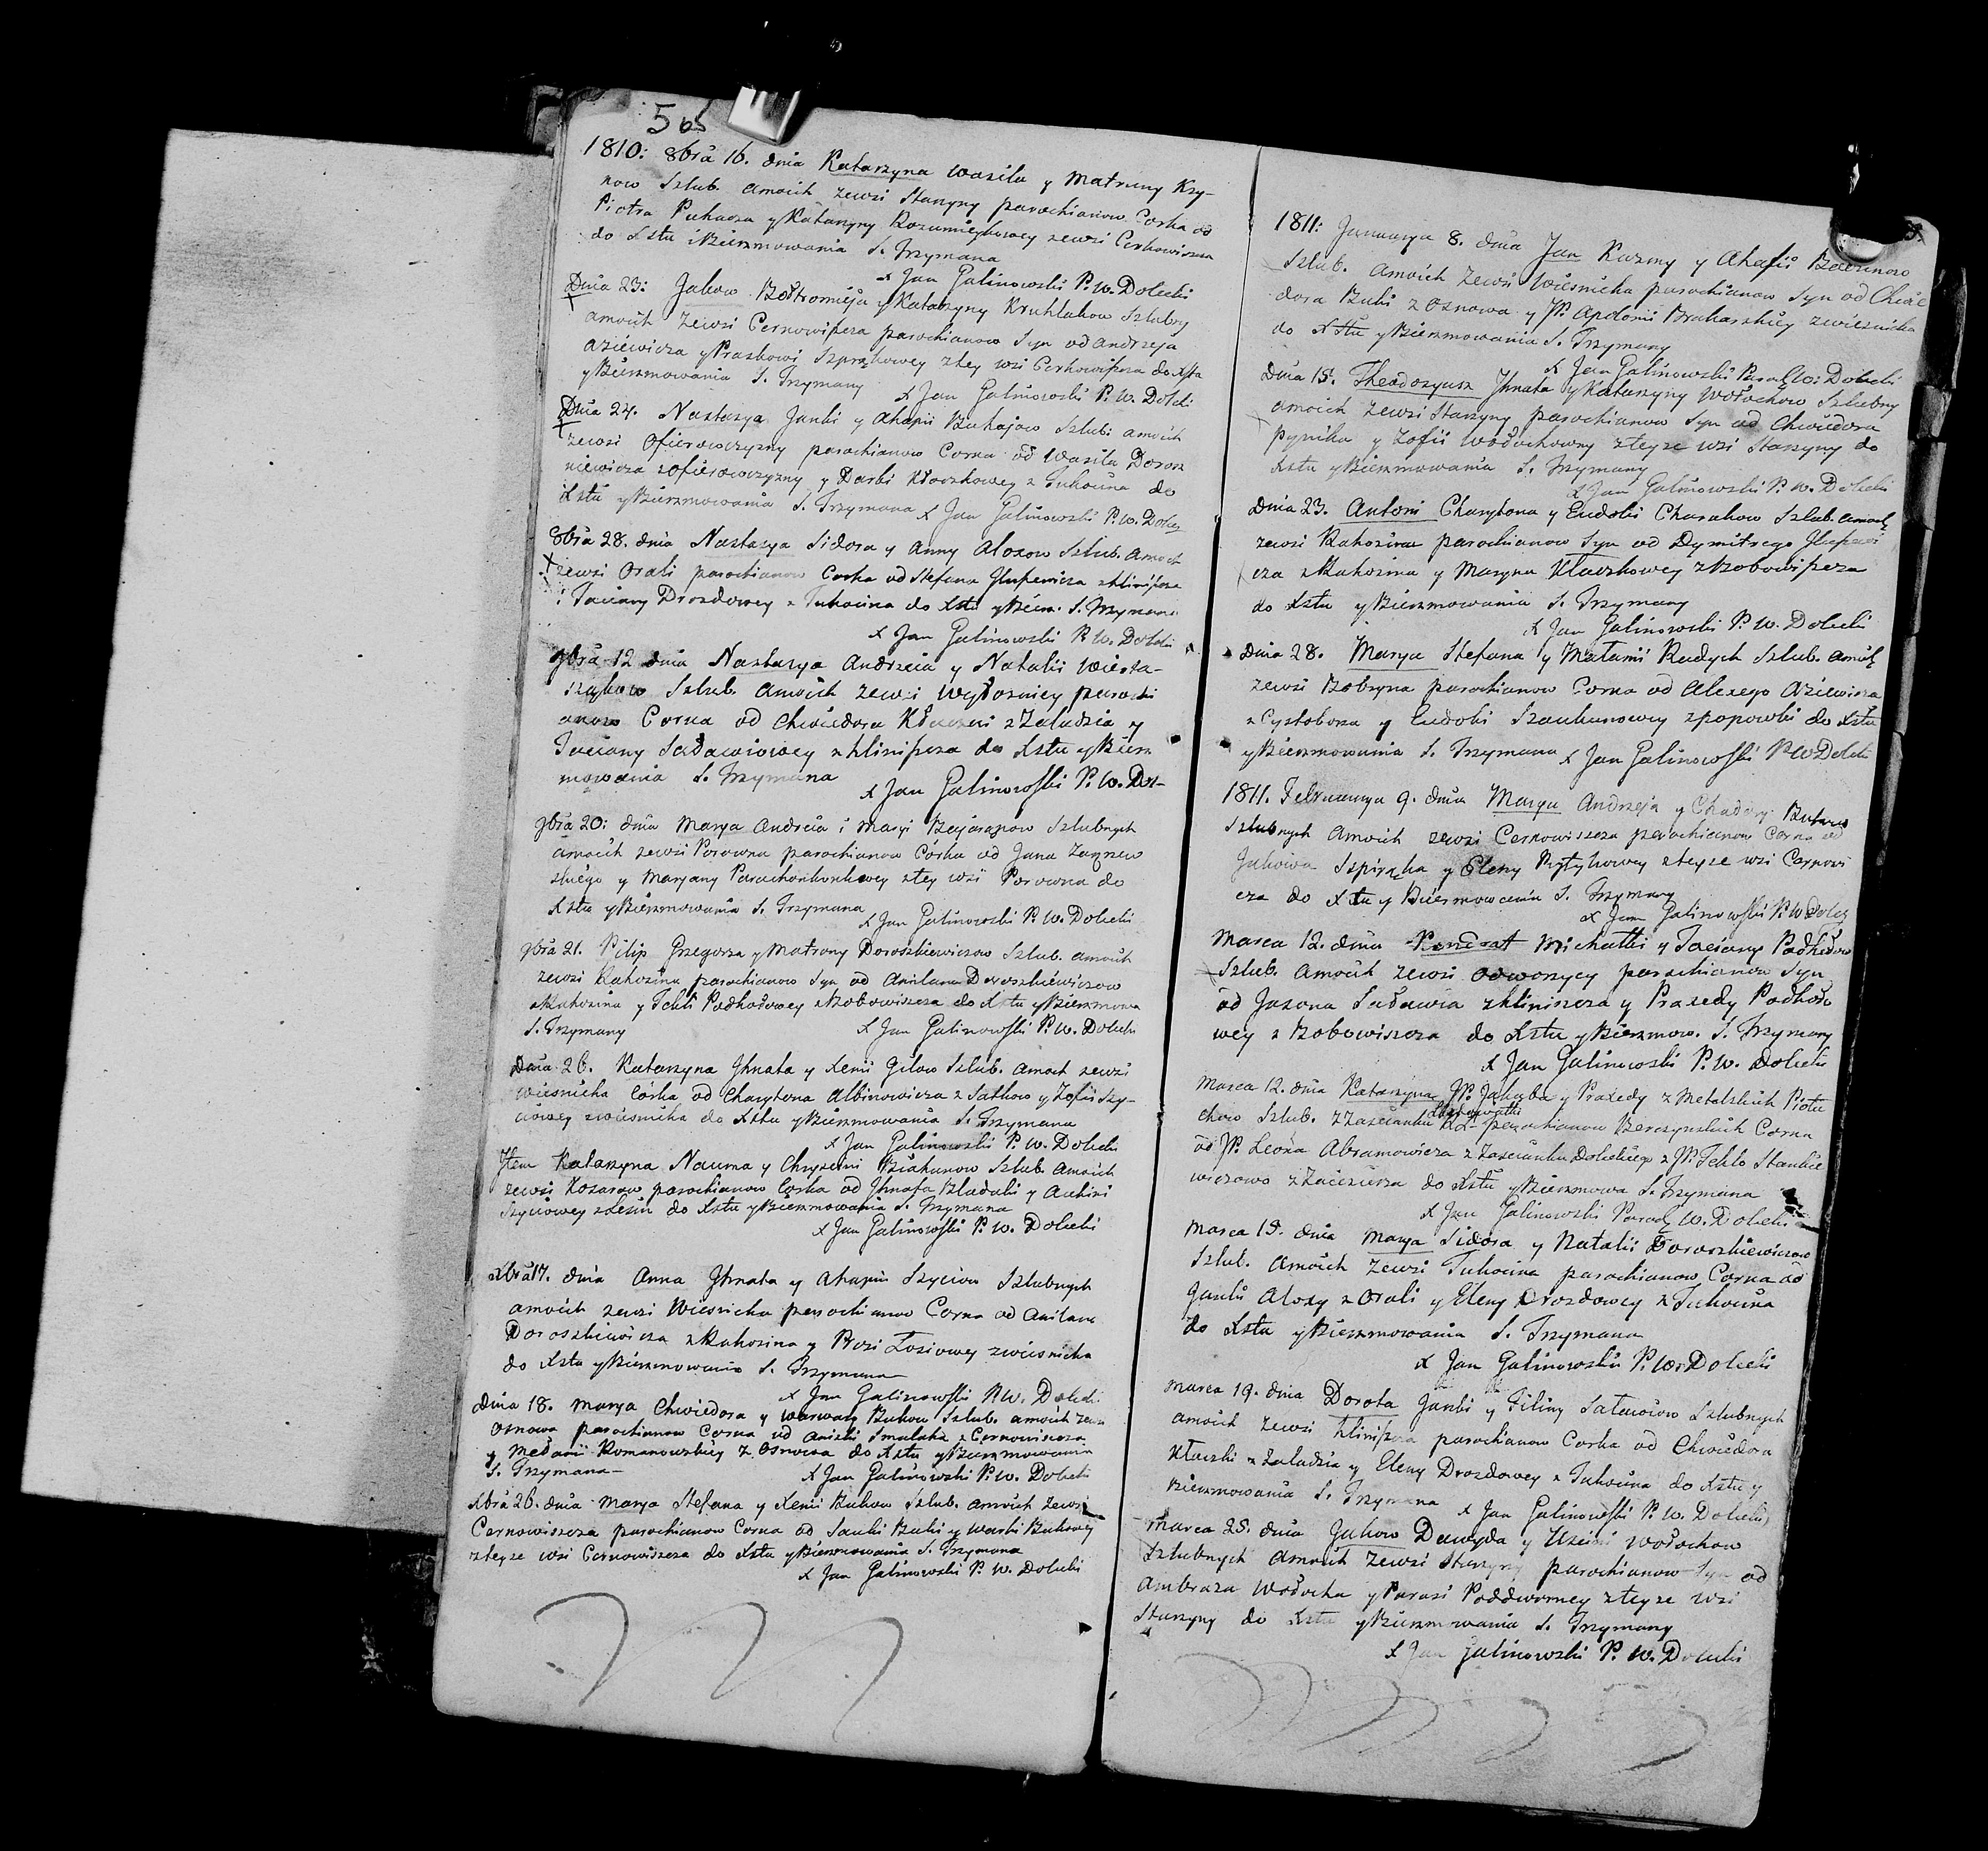 565
1810: 8bra 16. dnia Katarzyna Wasila y Matruny Kry-
kow Szlub. amoich zewsi Starzyny parochianow Corka od
Piotra Puhacza y Katarzyny zewsi Cerkowiszcza
do Xstu i Bierzmowania S. Trzymana
x Jan Galinowski P. W. Dolecki
Dnia 23: Jakow Bałtromieja y Katarzyny Kruhlakow Szlubny
amoich zewsi Cernowiszcza parochianow Syn od Andrzeja
Aziewicza y Praskowi ztey wsi do Xstu
y Bierzmowania S. Trzymany x Jan Galinowski P. W. Dolecki
Dnia 24. Nastazya Janki y Ahapii Buhajow Szlub: amoich
zewsi Ofierowszyzny parochianow Corka od Wasila Dorosz
niewicza zofierowszyzny y Darki Kłoczkowey z Tuhocina do
Xstu y Bierzmowania S. Trzymana x Jan Galinowski P. W. Dolec
8bra 28. dnia Nastazya Sidora y Anny Aloxow Szlub. Amoich
zewsi Orali parochianow Corka od Stefana zkliniszcza
i Taciany Drozdowey z Tuhocina do Xstu y Bierz. S. Trzymana
x Jan Galinowski P. W. Dolecki
9bra 12 dnia Nastazya Andrzeia y Natalii
Szlub. Amoich zewsi parochi
anow Corka od Chwiedora z Zaladzia y
Taciany zkliniszcza do Xstu y Bierz
mowania S. Trzymana x Jan Galinowski P. W. Dol-
9bra 20: dnia Marya Andreia i Maryi Szlubnych
amoich zewsi Porowna parochianow Córka od Jana
skiego y Maryany ztey wsi Porowna do
Xstu y Bierzmowania S. Trzymana x Jan Galinowski P. W. Dolecki
9bra 21. Pilip Grzegorza y Matrony Doroszkiewiczow Szlub. amoich
zewsi Rahozina parochianow Syn od Doroszkiewiczow
zRahozina y Tekli Podhołowey zBobowiszcza do Xstu y Bierzmowa
S. Trzymany x Jan Galinowski P. W. Dolecki
Dnia 26. Katarzyna Jhnata y Xeni Gilow Szlub. amoich zewsi
Wiesnicka Córka od Charytona Albinowicza z Satkow y Zofii Szy-
ciowey zwiesnicka do Xstu y Bierzmowania S. Trzymana
x Jan Galinowski P. W. Dolecki
Item Katarzyna Nauma y Chryzani Szlub. amoich
zewsi Kozarow parochianow Córka od Jhnata y
Szyciowey do Xstu y Bierzmowania S. Trzymana
x Jan Galinowski P. W. Dolecki
Xbra 17. dnia Anna Jhnata y Ahapii Szyciow Szlubnych
amoich zewsi Wiesnicka parochianow Corka od
Doroszkiewicza zRahozina y Łosiowey zwiesnicka
do Xstu y Bierzmowania S. Trzymana
x Jan Galinowski P. W. Dolecki
Dnia 18. Marya Chwiedora y Warwary Bukow Szlub. amoich zewsi
Osnowa parochianow Corka od Smalaka z Cernowiszcza
y Romanowskiey z Osnowa do Xstu y Bierzmowania
S. Trzymana- x Jan Galinowski P. W. Dolecki
Xbra 26. dnia Marya Stefana y Xeni Bukow Szlub. amoich zewsi
Cernowiszcza parochianow Corka od Sawki Buki y Warki Bukowey
zteyze wsi Cernowiszcza do Xstu y Bierzmowania S. Trzymana
x Jan Galinowski P. W. Dolecki
1811: Januarya 8. dnia Jan Kuzmy y Ahafii
Szlub. Amoich zewsi Wiesnicka parochianow Syn od Chwie
dora Buki z Osnowa y JP. Apolonii zwiesnicka
do Xstu y Bierzmowania S. Trzymany
x Jan Galinowski Paroch W: Dolecki
Dnia 15. Theodozyusz Jhnata y Katarzyny Wołochow Szlubny
amoich zewsi Starzyny parochianow Syn od Chwiedora
y Zofii Wołochowny zteyze wsi Starzyny do
Xstu y Bierzmowania S. Trzymany
x Jan Galinowski P. W. Dolecki
Dnia 23. Antoni Charytona y Eudoki Szlub. amoich
zewsi Rahozina parochianow Syn od Dymitrego
cza zRahozina y Maryna Kłaczkowey zBobowiszcza
do Xstu y Bierzmowania S. Trzymany
x Jan Galinowski P. W. Dolecki
Dnia 28. Marya Stefana y Małanii Rudych Szlub. amoich
zewsi Bobryna parochianow Corka od Alexego Aziewicza
y Eudoki Szaukunowey zpopowki do Xstu
y Bierzmowania S. Trzymana x Jan Galinowski P. W Dolecki
1811. Februarya 9. dnia Marya Andrzeja y
Szlubnych Amoich zewsi Cernowiszcza parochianow Corka od
Jakowa y Eleny zteyze wsi
cza do Xstu y Bierzmowania S. Trzymana
x Jan Galinowski P. W Dolec
Marca 12. dnia Kondrat Michałki y Taciany Podhołow
Szlub. Amoich zewsi parochianow Syn
od Jazona zkliniszcza y Praxedy Podhoło
wey z Bobowiszcza do Xstu y Bierzmow. S. Trzymany
x Jan Galinowski P. W. Dolecki
Marca 12. dnia Katarzyna JP. Jakuba y Praxedy z Metelskich Piotu
chow Szlub. z Zascianku parochianow Corka
od JP. Leona Abramowicza z Zascianku Dolckiego z JP. Teklo Stankie
wiczowo do Xstu y Bierzmowa S. Trzymana
x Jan Galinowski Paroch W. Dolecki
Marca 15. dnia Marya Sidora y Natalii Doroszkiewiczow
Szlub. Amoich zewsi Tuhocina parochianow Corka od
Janki Aloxy z Orali y Eleny Drozdowey z Tuhocina
do Xstu y Bierzmowania S. Trzymana
x Jan Galinowski P. W. Dolecki
Marca 19. dnia Dorota Janki y Szlubnych
amoich zewsi Kliniszcza parochianow Corka od Chwiedora
z Zaladzia y Eleny Drozdowey z Tuhocina do Xstu y
Bierzmowania S. Trzymana x Jan Galinowski P. W. Dolecki
Marca 25. dnia Jakow Dawyda y Wołochow
Szlubnych Amoich zewsi Starzyny parochianow Syn od
Ambraza Wołocha y Parasi Poddworney zteyze wsi
Starzyny do Xstu y Bierzmowania S. Trzymany
x Jan Galinowski P. W. Dolecki